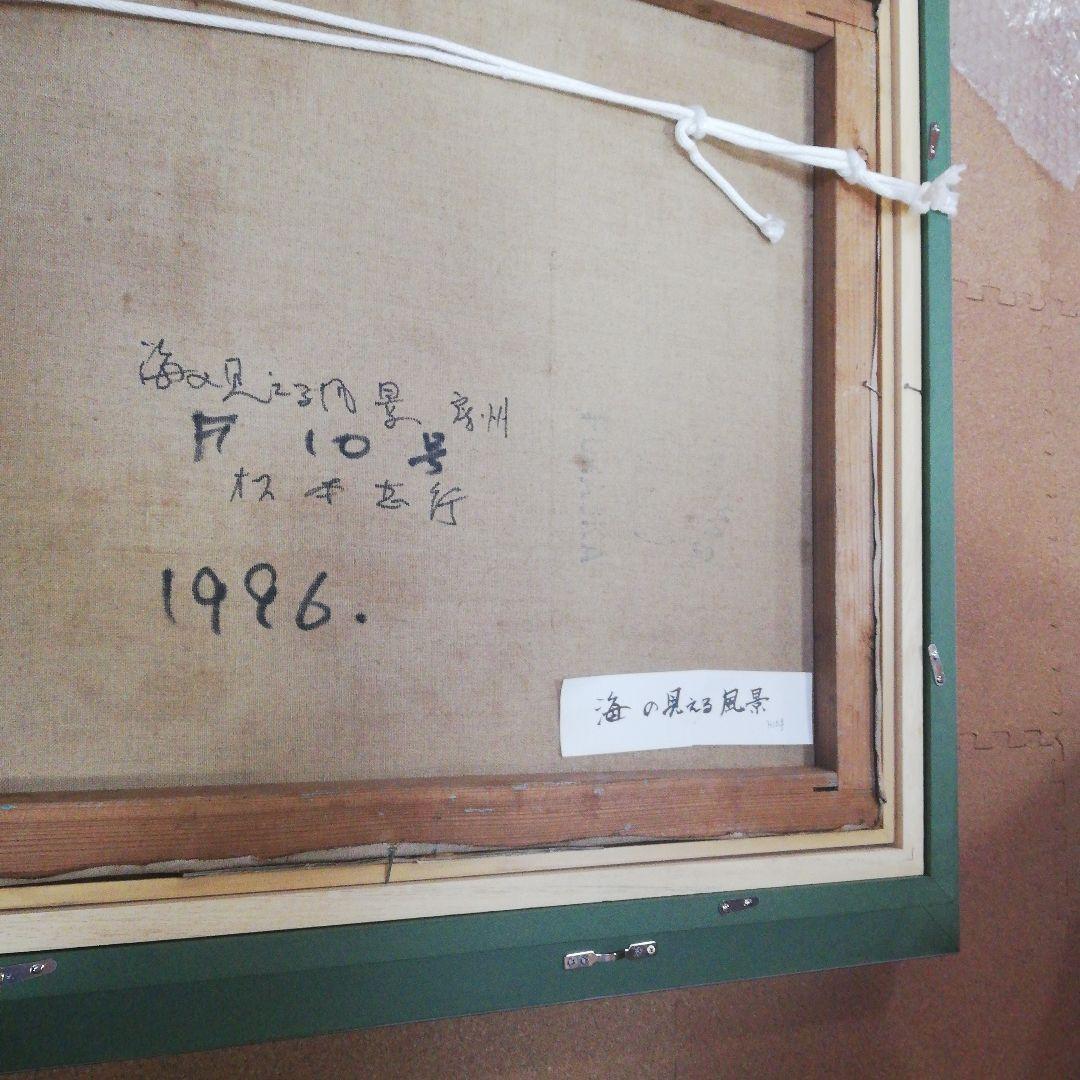 海の見える風景 房州
F 10号
1996.
海の見える風景